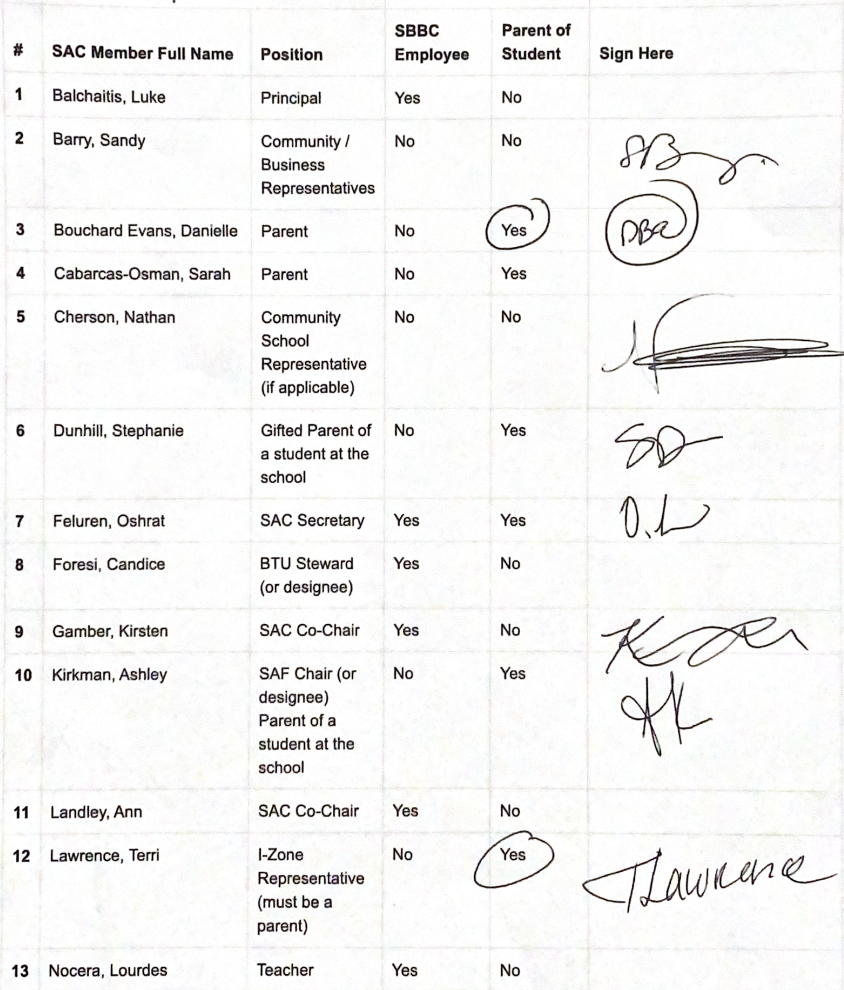 # SAC Member Full Name Position SBBC Employee Parent of Student Sign Here
1 Balchaitis, Luke Principal Yes No
2 Barry, Sandy Community / No No
Business
Representatives
3 Bouchard Evans, Danielle Parent No Yes DBE
4 Cabarcas-Osman, Sarah Parent No Yes
5 Cherson, Nathan Community No No
School
Representative
(if applicable)
6 Dunhill, Stephanie Gifted Parent of No Yes SD
a student at the
school
7 Feluren, Oshrat SAC Secretary Yes Yes
8 Foresi, Candice BTU Steward Yes No
(or designee)
9 Gamber, Kirsten SAC Co-Chair Yes No
10 Kirkman, Ashley SAF Chair (or No Yes AK
designee)
Parent of a
student at the
school
11 Landley, Ann SAC Co-Chair Yes No
12 Lawrence, Terri I-Zone No Yes TLawrence
Representative
(must be a
parent)
13 Nocera, Lourdes Teacher Yes No